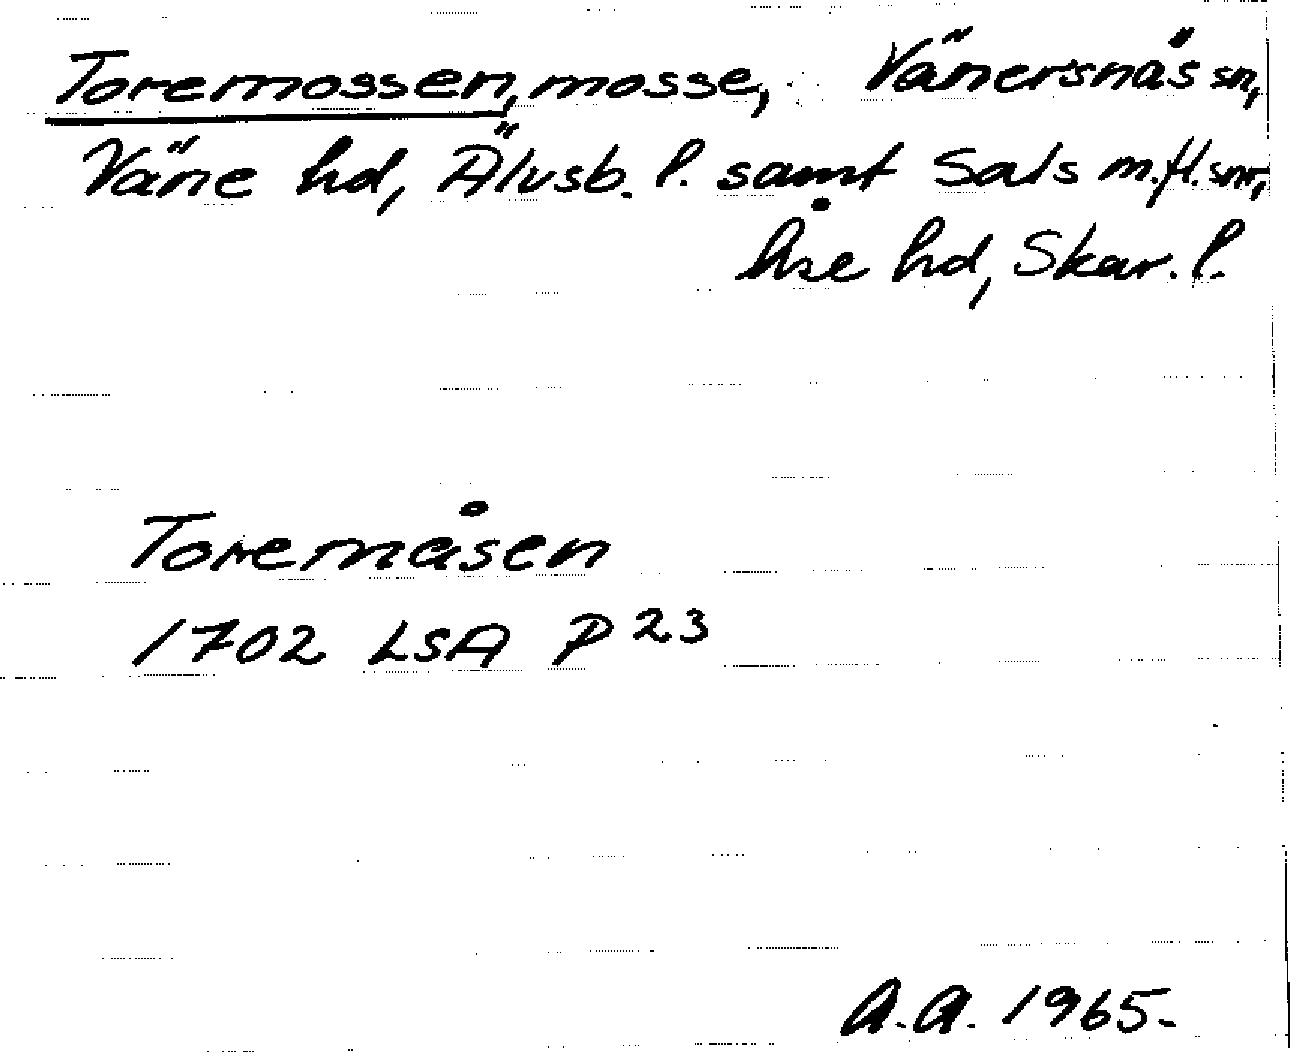 Toremossen, mosse, Vänersnäs sn,
Väne hd, Älvsb. l. samt Sals m.fl. snr,
Åse hd, Skar. l.
Toremåsen
1702 LSA P 23
A.A. 1965.